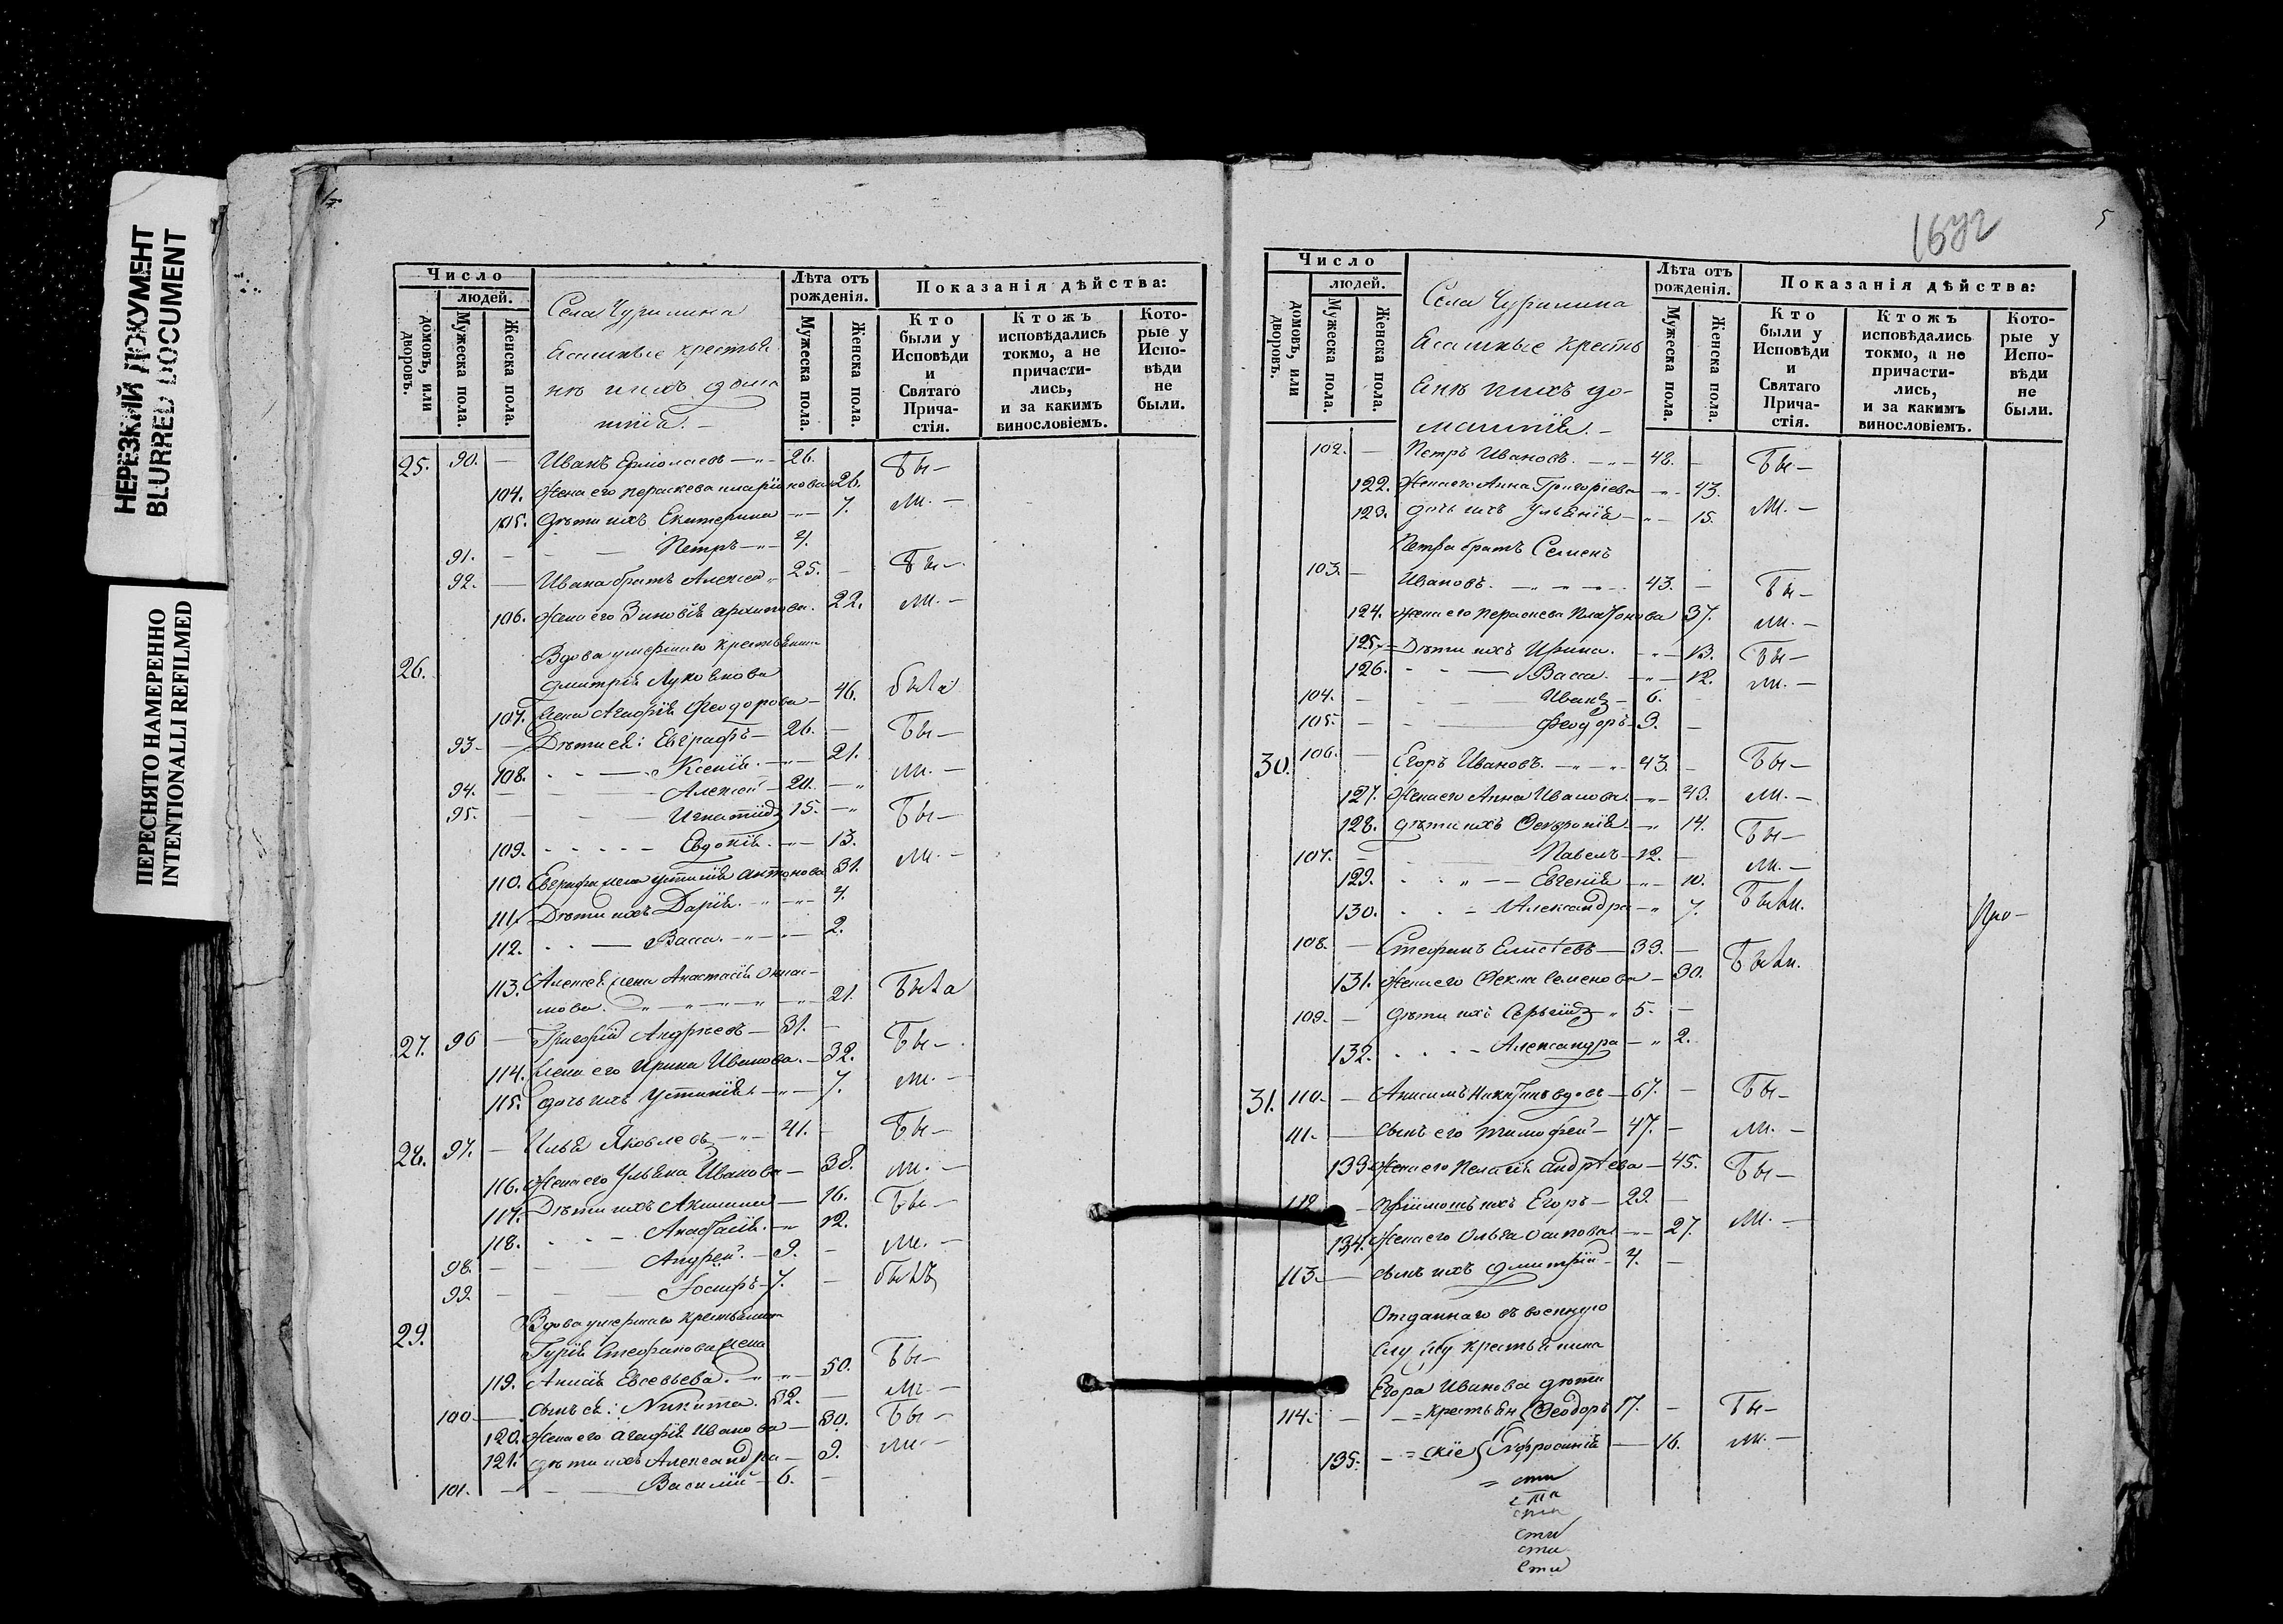 НЕРЕЗКИЙ ДОКУМЕНТ
BLURRED DOCUMENT
ПЕРЕСНЯТО НАМЕРЕННО
INTENTIONALLI REFILMED
Число
людей.
домовъ, или дворовъ.
Мужеска пола.
Женска пола.
Села Чурилина
Ясашные крестья
не ихъ дома
шнія. —
Лѣта отъ рожденія.
Мужеска пола.
Женска пола.
Показанія дѣйства:
Кто были у Исповѣди и Святаго Причастія.
Ктожъ исповѣдались токмо, а не причастились, и за какимъ винословіемъ.
Которые у Исповѣди не были.
25. 90. — Иванъ Ермолаевъ — 26. Бы—
104. Жена его Параскева Иларіонова 26.
105. Дѣти ихъ Екатерина — 7. ли. —
91. — Петръ — 4.
92. — Ивана братъ Алексѣй 25. — Бы—
106. Жена его Зиновія Архипова. 22. ли. —
26. Вдова умершаго крестьянина
Дмитрія Лукоянова
107. жена Агафія Феодорова — 46. была
93. — Дѣти ея: Евграфъ — 26. — Бы—
108. — Ксенія. — 21.
94. — Алексѣй — 20. — ли. —
95. — Игнатій 15. — Бы—
109. — Евдокія. — 13.
110. Евграфа жена Устинія Антонова 31. ли. —
111. Дѣти ихъ Дарія. — 4.
112. — Васса. — 2.
113. Алексѣя жена Анастасія
мова. — 21. Была
27. 96 — Григорій Андреевъ — 31. — Бы—
114. жена его Ирина Иванова. — 32.
115. дочь ихъ Устинія. — 7. ли. —
28. 97. — Илья Яковлевъ — 41. — Бы—
116. Жена его Ульяна Иванова — 38. ли. —
117. Дѣти ихъ Акилина — 16. Бы—
118. — Анастасія. — 12.
98. — Андрей. — 9. — ли. —
99. — Іосифъ — 7. — былъ
29. Вдова умершаго крестьянина
Гурія Стефанова жена
119. Анисія Евсевьева. — 50. Бы—
100 — сынъ ея: Никита. 32. — ли —
120. Жена его Агафія Иванова — 30. Бы—
121. дѣти ихъ Александра — 9. ли—
101. — Василій — 6. —
5
Число
людей.
домовъ, или дворовъ.
Мужеска пола.
Женска пола.
Села Чурилина
Ясашные кресть
яне ихъ до-
машнія. —
Лѣта отъ рожденія.
Мужеска пола.
Женска пола.
Показанія дѣйства:
Кто были у Исповѣди и Святаго Причастія.
Ктожъ исповѣдались токмо, а не причастились, и за какимъ винословіемъ.
Которые у Исповѣди не были.
102. — Петръ Ивановъ. — 48. — Бы—
122. Жена его Анна Григорiева — 43.
123. дочь ихъ Ульянія — 15. ли. —
Петра братъ Семенъ
103. — Ивановъ. — 43. — Бы—
124. Жена его Параскева Платонова 37. ли. —
125. Дѣти ихъ Ирина. — 13. Бы—
126. — Васса. — 12. ли. —
104. — Иванъ — 6.
105. — Феодоръ — 3. —
30. 106. — Егоръ Ивановъ. — 43. — Бы—
127. Жена его Анна Иванова. — 43. ли. —
128. дѣти ихъ Февронія — 14. Бы—
107. — Павелъ — 12. — ли. —
129. — Евгенія — 10.
130. — Александра — 7. Были.
108. — Стефанъ Елисѣевъ — 33. — Были.
131. Жена его Ѳекла Семенова — 30.
109. — дѣти ихъ Сергій 5. —
132. — Александра — 2.
31. 110. — Анисимъ Никитинъ вдовъ — 67. — Бы—
111. — сынъ его Тимофей — 47. — ли. —
133. Жена его Пелагія Андрѣева — 45. Бы—
112. — пріимышъ ихъ Егоръ — 29. —
134. Жена его Ольга Осипова — 27. ли. —
113. — сынъ ихъ Димитрій — 4. —
Отданнаго въ военную
службу крестьянина
Егора Иванова дѣти
114. — = крестьян Ѳеодоръ 17. — Бы—
135. — = скіе Ефросинія — 16. ли. —
= сти
сти
сти
сти
сти
сти